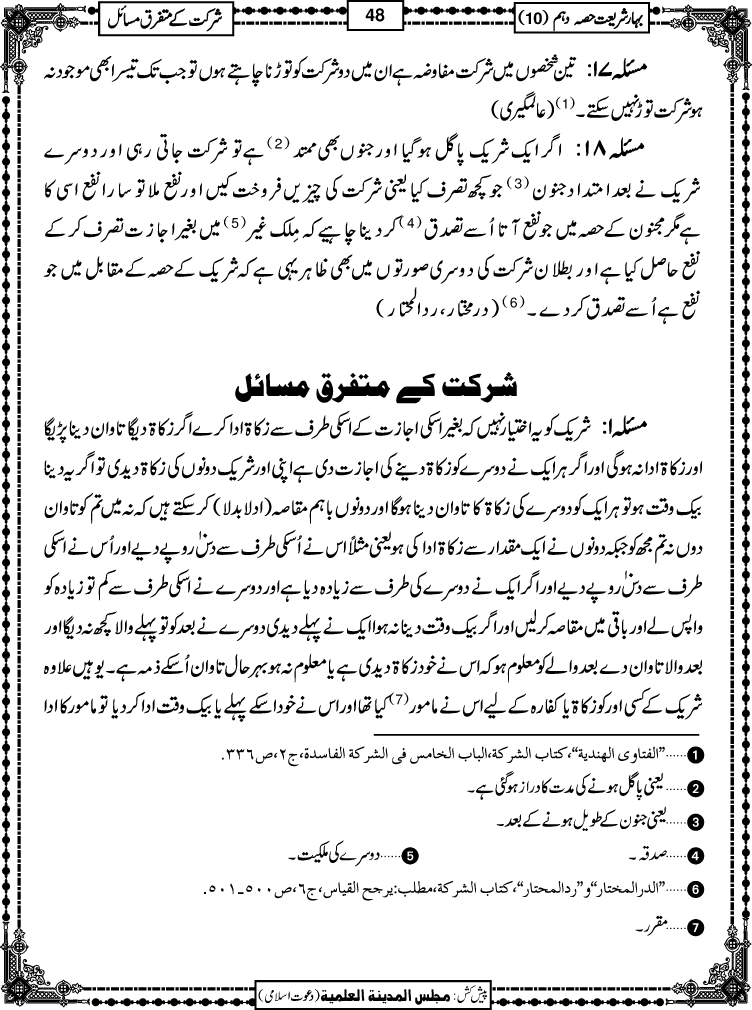 بہارِ شریعت حصہ دہم (10)
48
شرکت کے متفرق مسائل
مسئلہ ۱۷: تین شخصوں میں شرکت مفاوضہ ہے ان میں دو شرکت کو توڑنا چاہتے ہوں تو جب تک تیسرا بھی موجود نہ
ہو شرکت توڑ نہیں سکتے۔(1)(عالمگیری)
مسئلہ ۱۸: اگر ایک شریک پاگل ہوگیا اور جنوں بھی ممتد(2) ہے تو شرکت جاتی رہی اور دوسرے
شریک نے بعد امتداد جنون(3) جو کچھ تصرف کیا یعنی شرکت کی چیزیں فروخت کیں اور نفع ملا تو سارا نفع اسی کا
ہے مگر مجنون کے حصہ میں جو نفع آتا اُسے تصدق(4) کر دینا چاہیے کہ مِلک غیر(5) میں بغیر اجازت تصرف کرکے
نفع حاصل کیا ہے اور بطلان شرکت کی دوسری صورتوں میں بھی ظاہر یہی ہے کہ شریک کے حصہ کے مقابل میں جو
نفع ہے اُسے تصدق کر دے۔(6)(درمختار، ردالمحتار)
شرکت کے متفرق مسائل
مسئلہ ۱: شریک کو یہ اختیار نہیں کہ بغیر اسکی اجازت کے اسکی طرف سے زکاۃ ادا کرے اگر زکاۃ دیگا تاوان دینا پڑیگا
اور زکاۃ ادا نہ ہوگی اور اگر ہر ایک نے دوسرے کو زکاۃ دینے کی اجازت دی ہے اپنی اور شریک دونوں کی زکاۃ دیدی تو اگر یہ دینا
بیک وقت ہو تو ہر ایک کو دوسرے کی زکاۃ کا تاوان دینا ہوگا اور دونوں باہم مقاصہ (ادلا بدلا) کر سکتے ہیں کہ نہ میں تم کو تاوان
دوں نہ تم مجھ کو جبکہ دونوں نے ایک مقدار سے زکاۃ ادا کی ہو یعنی مثلاً اس نے اُسکی طرف سے دس۱۰ روپے دیے اور اُس نے اسکی
طرف سے دس۱۰ روپے دیے اور اگر ایک نے دوسرے کی طرف سے زیادہ دیا ہے اور دوسرے نے اسکی طرف سے کم تو زیادہ کو
واپس لے اور باقی میں مقاصہ کرلیں اور اگر بیک وقت دینا نہ ہوا ایک نے پہلے دیدی دوسرے نے بعد کو تو پہلے والا کچھ نہ دیگا اور
بعد والا تاوان دے بعد والے کو معلوم ہو کہ اس نے خود زکاۃ دیدی ہے یا معلوم نہ ہو بہرحال تاوان اُسکے ذمہ ہے۔ یوہیں علاوہ
شریک کے کسی اور کو زکاۃ یا کفارہ کے لیے اس نے مامور(7) کیا تھا اور اس نے خود اسکے پہلے یا بیک وقت ادا کر دیا تو مامور کا ادا
1 ......"الفتاوی الھندیة"، کتاب الشرکة، الباب الخامس فی الشرکة الفاسدة، ج۲، ص۳۳۶.
2 ......یعنی پاگل ہونے کی مدت کا دراز ہوگئی ہے۔
3 ......یعنی جنون کے طویل ہونے کے بعد۔
4 ......صدقہ۔ 5 ......دوسرے کی ملکیت۔
6 ......"الدرالمختار" و"ردالمحتار"، کتاب الشرکة، مطلب: یرجح القیاس، ج۶، ص۵۰۰-۵۰۱.
7 ......مقرر۔
پیش کش: مجلس المدینۃ العلمیۃ (دعوت اسلامی)